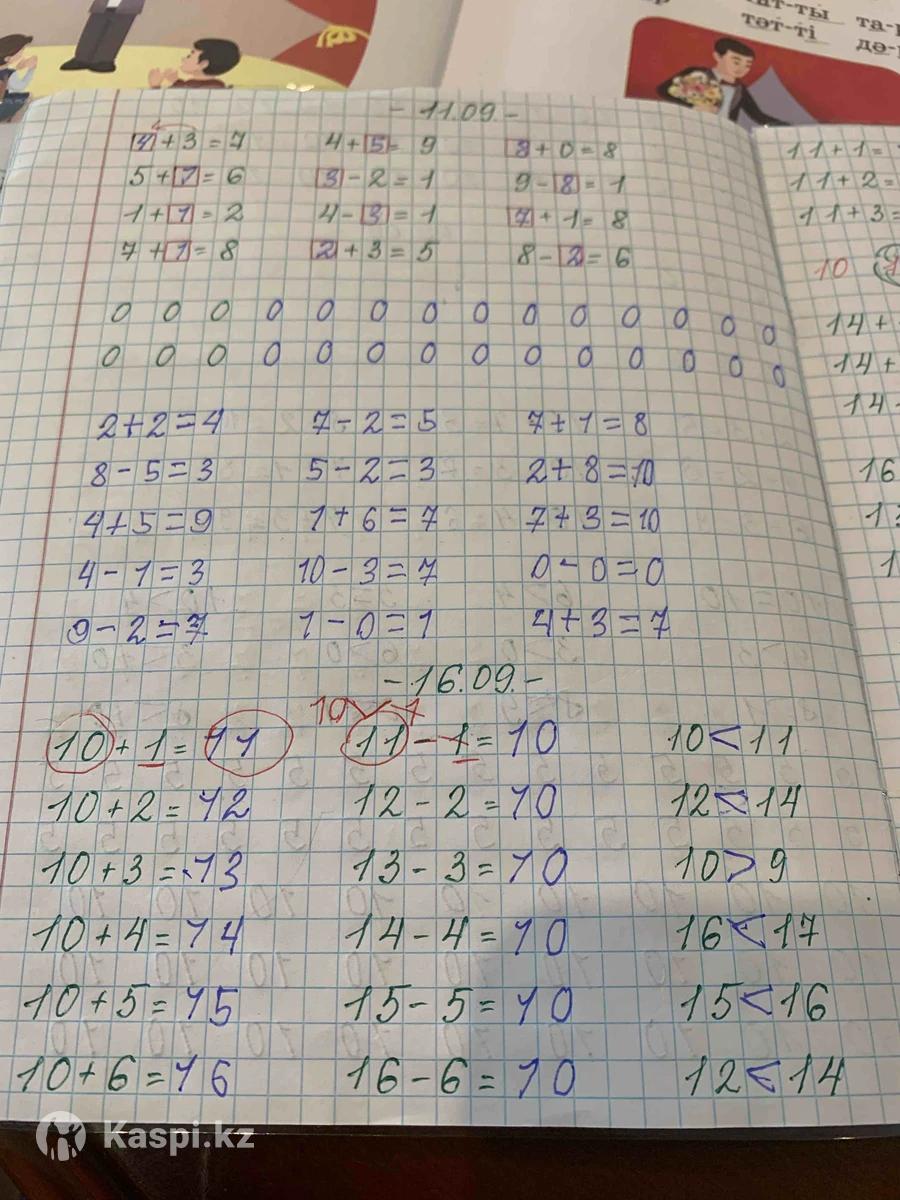 тәт-ті
- 11.09. -
4 + 3 = 7 4 + 5 = 9 8 + 0 = 8
5 + 1 = 6 3 - 2 = 1 9 - 8 = 1
1 + 1 = 2 4 - 3 = 1 7 + 1 = 8
7 + 1 = 8 2 + 3 = 5 8 - 2 = 6
0 0 0 0 0 0 0 0 0 0 0 0 0 0
0 0 0 0 0 0 0 0 0 0 0 0 0 0
2 + 2 = 4 7 - 2 = 5 7 + 1 = 8
8 - 5 = 3 5 - 2 = 3 2 + 8 = 10
4 + 5 = 9 1 + 6 = 7 7 + 3 = 10
4 - 1 = 3 10 - 3 = 7 0 - 0 = 0
9 - 2 = 7 1 - 0 = 1 4 + 3 = 7
- 16.09. -
10 1
10 + 1 = 11 11 - 1 = 10 10 < 11
10 + 2 = 12 12 - 2 = 10 12 < 14
10 + 3 = 13 13 - 3 = 10 10 > 9
10 + 4 = 14 14 - 4 = 10 16 < 17
10 + 5 = 15 15 - 5 = 10 15 < 16
10 + 6 = 16 16 - 6 = 10 12 < 14
11 + 1 =
11 + 2 =
11 + 3 =
10
14 +
14 +
14 -
16
Kaspi.kz